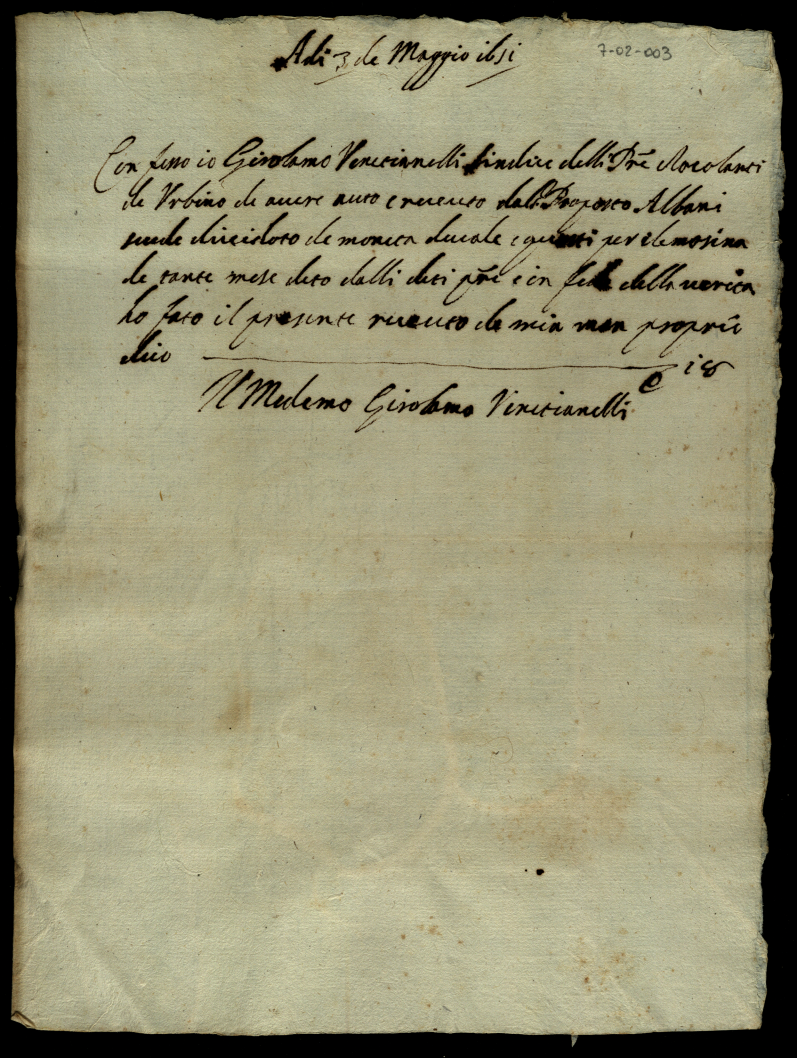 Adi 3 de Maggio 1651
7-02-003
Con fesso io Girolamo Venetianelli sindice delli Prē Zocolanti
de Vrbino de avere auto e receuto dall Proposto Albani
scude diecidoto de moneta ducale e questi per elemosina
de tante mese deto dalli deti prē e in fede della verita
ho fato il presente receuto de mia man propriā
dico 18
Il Medemo Girolamo Venetianelli